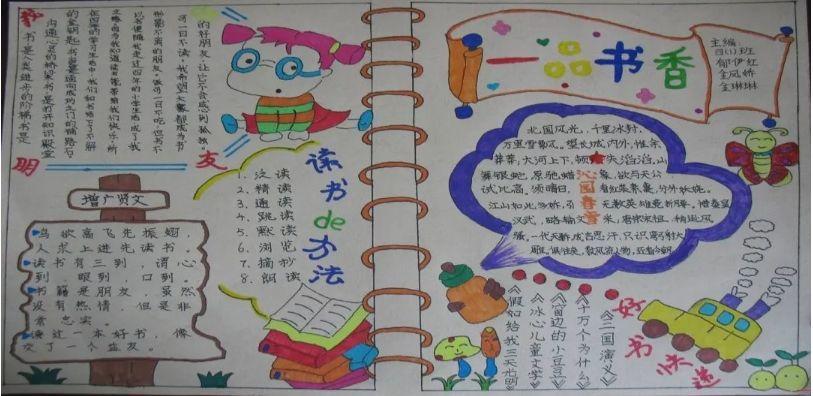 一品书香
主编:
四(1)班
郁伊虹
金凤娇
金琳琳
北国风光,千里冰封,
万里雪飘。望长城内外,惟余
莽莽,大河上下,顿失滔滔。山
舞银蛇,原驰蜡象,欲与天公
试比高。须晴日,看红装素裹,分外妖娆。
江山如此多娇,引无数英雄竞折腰。惜秦皇
汉武,略输文采,唐宗宋祖,稍逊风
骚。一代天骄,成吉思汗,只识弯弓射大
雕。俱往矣,数风流人物,还看今朝。
沁园春雪
好书快递
《三国演义》
《十万个为什么》
《窗边的小豆豆》
《冰心儿童文学》
《假如给我三天光明》
读书de方法
1. 泛读
2. 精读
3. 通读
4. 跳读
5. 默读
6. 浏览
7. 摘抄
8. 朗读
书是人类进步的阶梯书是
沟通心灵的桥梁书是打开知识殿堂
的好朋友,让它不会感到孤独。
增广贤文
鸟欲高飞先振翅,
人求上进先读书。
读书有三到,谓心
到,眼到,口到。
书籍是朋友,虽然
没有热情,但是非
常忠实。
读过一本好书,像
交了一个益友。